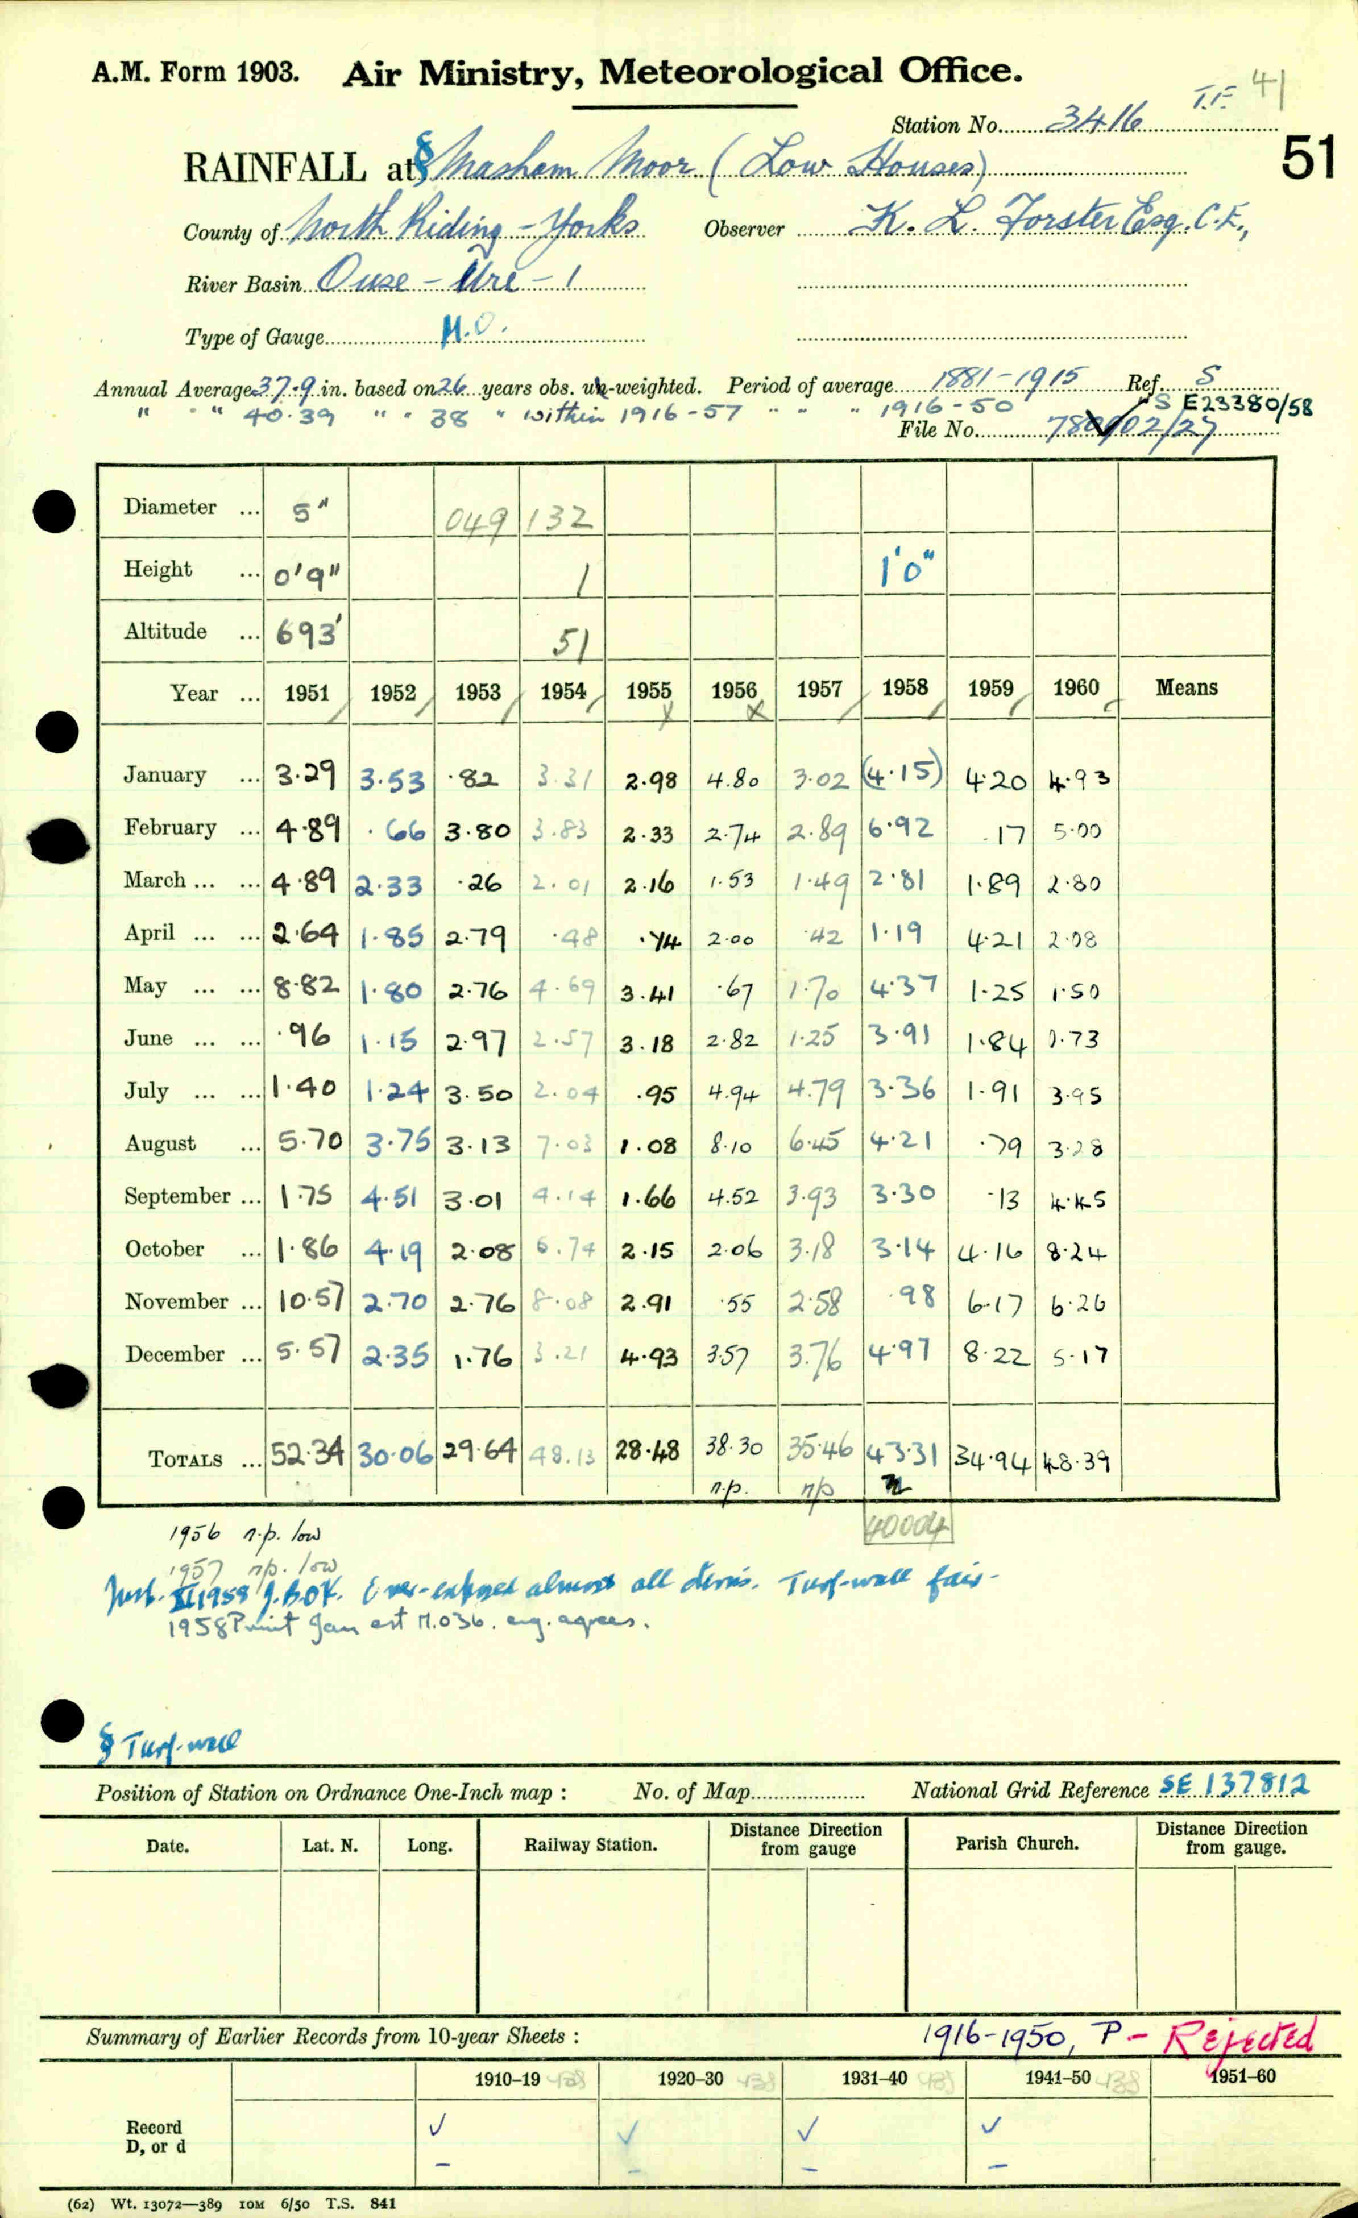 A.M. Form 1903. Air Ministry, Meteorological Office.
T.F. 41
Station No. 3416
51
RAINFALL at § Masham Moor (Low Houses)
County of North Riding - Yorks Observer K. L. Forster Esq. C.E.,
River Basin Ouse - Ure - 1
Type of Gauge M.O.
Annual Average 37.9 in. based on 26 years obs. un-weighted. Period of average 1881-1915 Ref. S
" " 40.39 " " 38 " within 1916-57 " " " 1916-50 "S E23380/58
File No. 780902/27
Diameter ... 5" 049 132
Height ... 0'9" 1 1'0"
Altitude ... 693' 51
Year ... 1951 1952 1953 1954 1955 1956 1957 1958 1959 1960 Means
January ... 3.29 3.53 .82 3.31 2.98 4.80 3.02 (4.15) 4.20 4.93
February ... 4.89 .66 3.80 3.83 2.33 2.74 2.89 6.92 .17 5.00
March ... ... 4.89 2.33 .26 2.01 2.16 1.53 1.49 2.81 1.89 2.80
April ... ... 2.64 1.85 2.79 .48 .74 2.00 .42 1.19 4.21 2.08
May ... ... 8.82 1.80 2.76 4.69 3.41 .67 1.70 4.37 1.25 1.50
June ... ... .96 1.15 2.97 2.57 3.18 2.82 1.25 3.91 1.84 0.73
July ... ... 1.40 1.24 3.50 2.04 .95 4.94 4.79 3.36 1.91 3.95
August ... 5.70 3.75 3.13 7.03 1.08 8.10 6.45 4.21 .79 3.28
September ... 1.75 4.51 3.01 4.14 1.66 4.52 3.93 3.30 .13 4.45
October ... 1.86 4.19 2.08 6.74 2.15 2.06 3.18 3.14 4.16 8.24
November ... 10.57 2.70 2.76 8.08 2.91 .55 2.58 .98 6.17 6.26
December ... 5.57 2.35 1.76 3.21 4.93 3.57 3.76 4.97 8.22 5.17
TOTALS ... 52.34 30.06 29.64 48.13 28.48 38.30 35.46 43.31 34.94 48.39
n.p. n/p
40004
1956 n.p. low
1957 n/p. low
Inst. XI 1958 J.B.O.K. Over-exposed almost all dirns. Turf-wall fair-
1958 Print Jan est M.036. eng. agrees.
§ Turf-wall
Position of Station on Ordnance One-Inch map : No. of Map National Grid Reference SE 137812
Date. Lat. N. Long. Railway Station. Distance Direction from gauge Parish Church. Distance Direction from gauge.
Summary of Earlier Records from 10-year Sheets : 1916-1950, P - Rejected
1910–19 1920–30 1931–40 1941–50 1951–60
Record
D, or d
(62) Wt. 13072—389 10M 6/50 T.S. 841